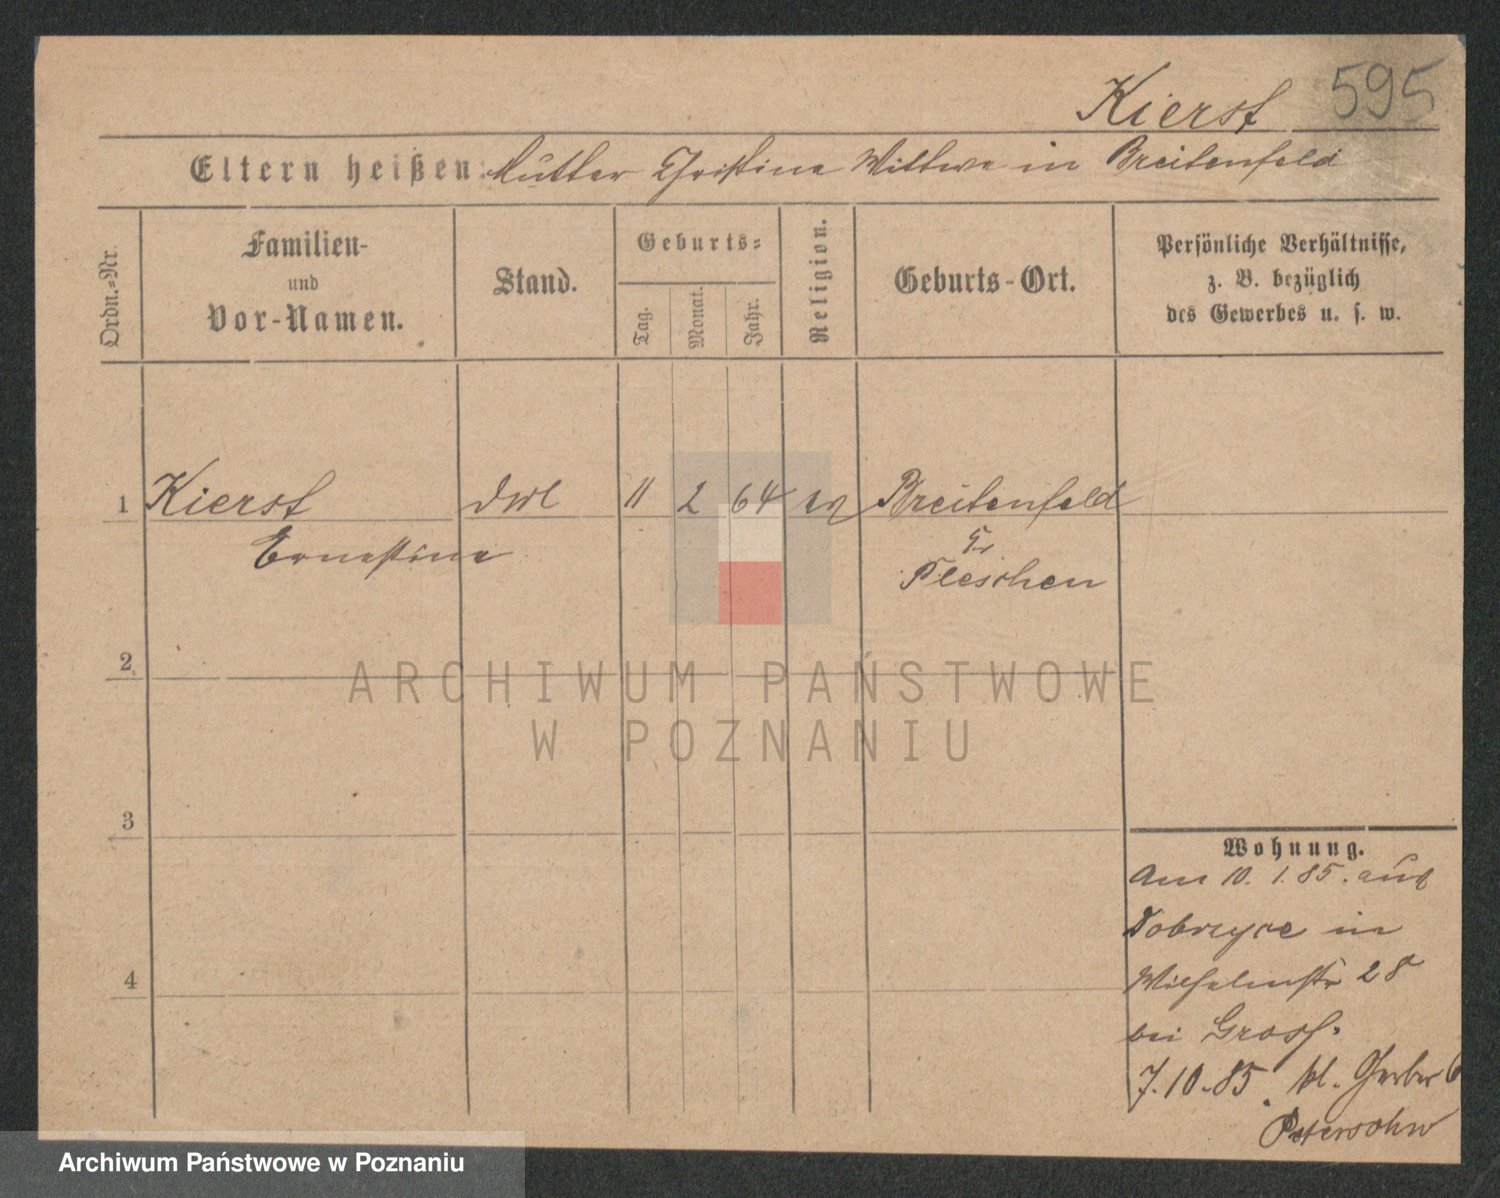 Kierst 595
Eltern heißen: Mutter Christine Wittwe in Breitenfeld
Ordn.-Nr.
Familien-
und
Vor-Namen.
Stand.
Geburts-
Tag.
Monat.
Jahr.
Religion.
Geburts-Ort.
Persönliche Verhältnisse,
z. B. bezüglich
des Gewerbes u. s. w.
1 Kierst 11 2 64 ev Breitenfeld
Ernestine Kr
Pleschen
2
ARCHIWUM PAŃSTWOWE
W POZNANIU
3
Wohnung.
Am 10. 1. 85. aus
Dobrzyce in
4
Wilhelmstr 28
bei Gross.
7.10.85. kl. Gerber 6
Petersohn
Archiwum Państwowe w Poznaniu